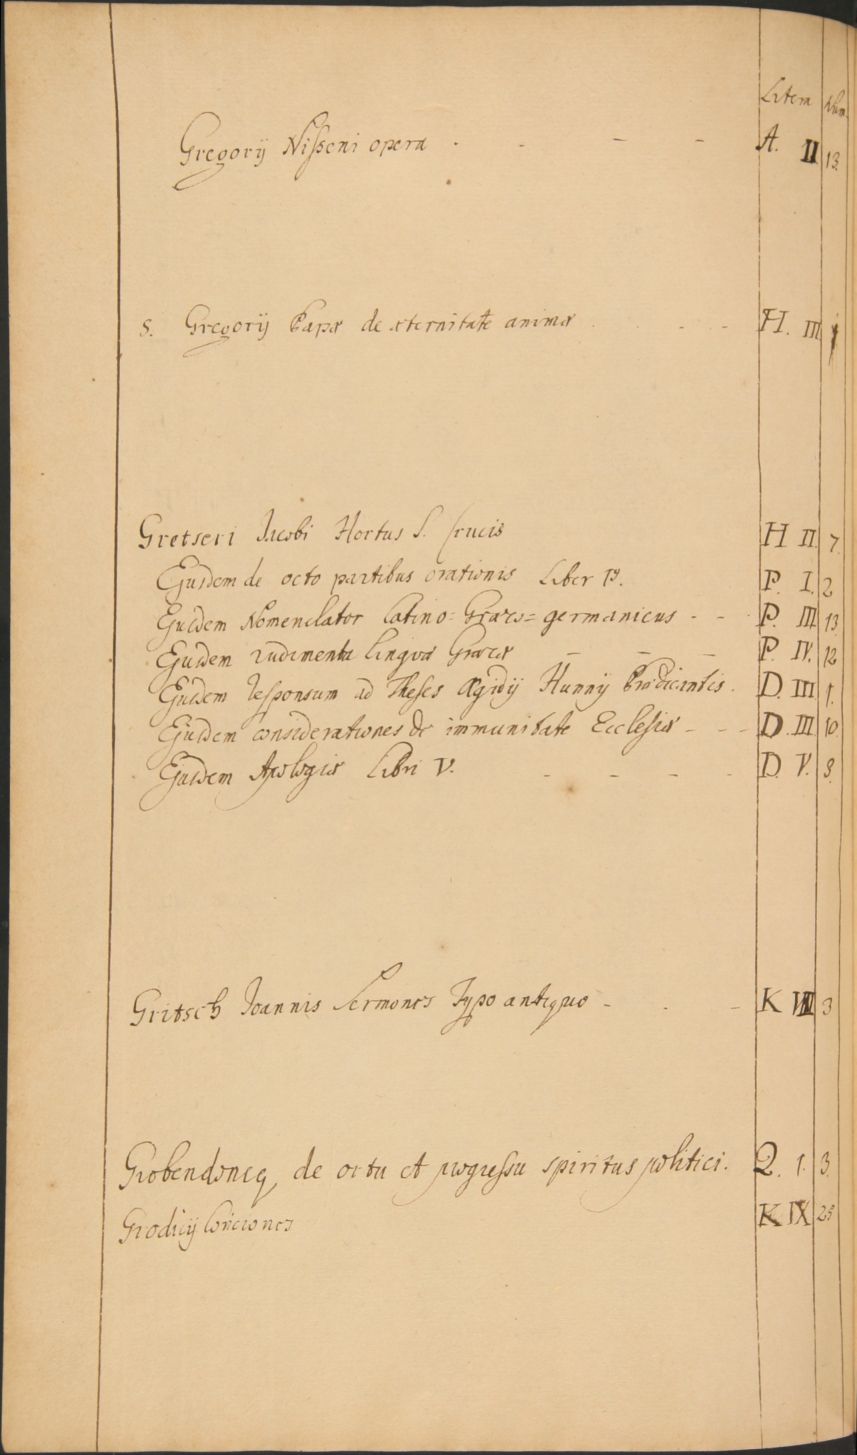 Litera Num.
Gregorij Nisseni opera . - - - A. II 13.
S. Gregorij Papæ de æternitate animæ . - - H. III 1
Gretseri Jacobi Hortus S. Crucis H II. 7.
Ejusdem de octo partibus orationis Liber P. I. 2
Ejusdem Nomenclator latino=Græco=germanicus - - - P. III 13
Ejusdem rudimenta linguæ Græcæ - - - P. IV. 12
Ejusdem responsum ad Theses Ægidij Hunnij Prædicantis. D. III 1.
Ejusdem considerationes de immunitate Ecclesiæ - - - D. III 10.
Ejusdem Apologiæ Libri V. - - - - D. V. 8.
Gritsch Joannis Sermones Typo antiquo - . - K VIII 3
Grobendoncq de ortu et progressu spiritus politici. Q. 1. 3.
Grodicij Conciones K IX 25